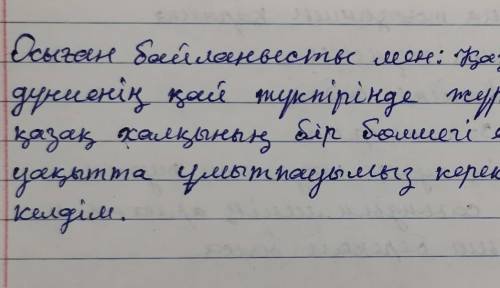 Осыған байланысты мен: Қаз
дүниенің қай түкпірінде жүр
қазақ халқының бір бөлшегі е
уақытта ұмытпауымыз керек
келдім.